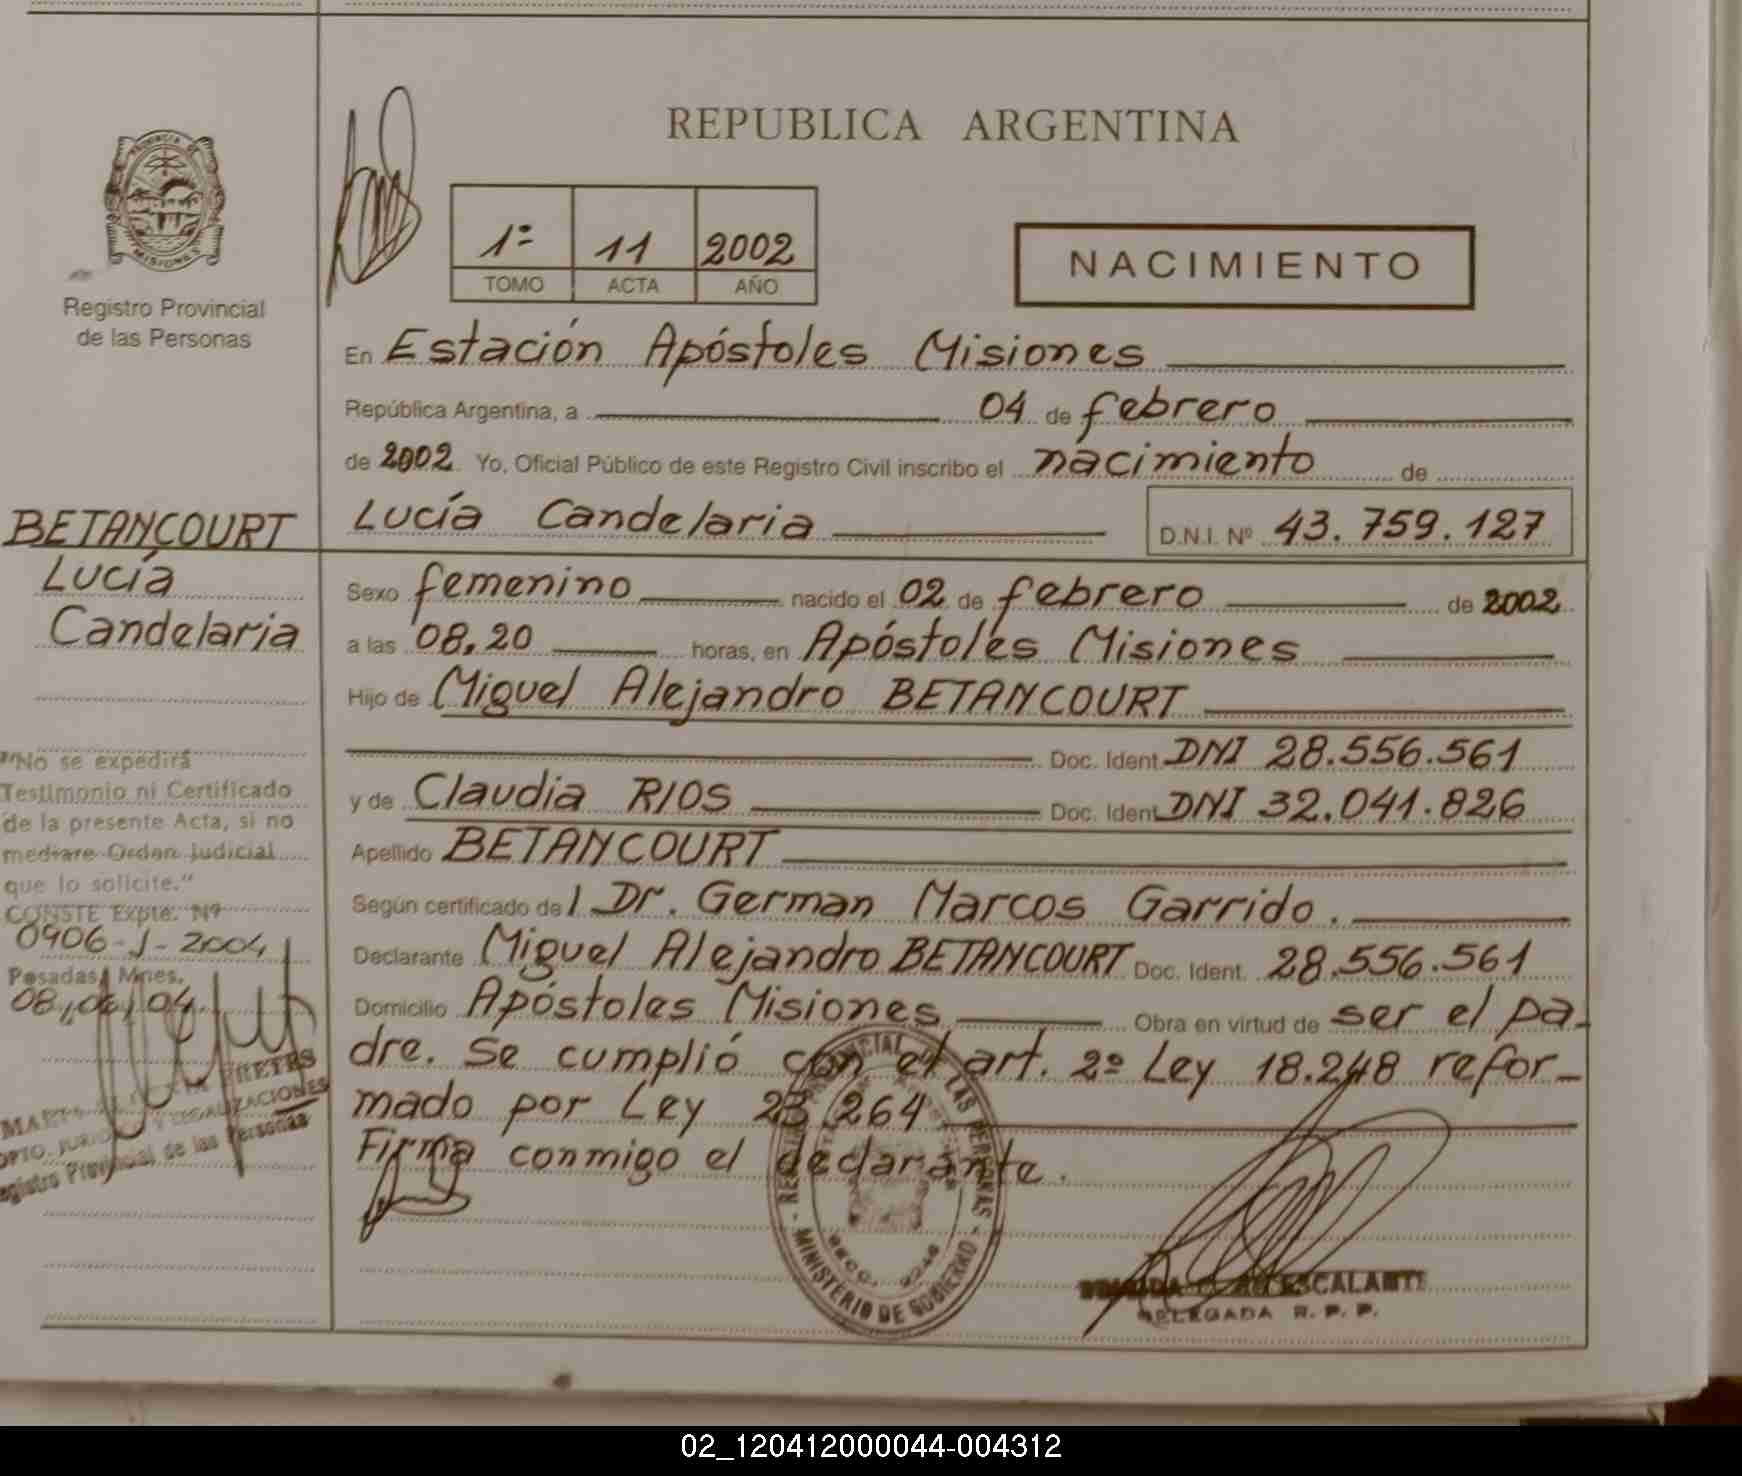 REPUBLICA ARGENTINA
PROVINCIA DE MISIONES
Registro Provincial
de las Personas
1º 11 2002
TOMO ACTA AÑO
NACIMIENTO
En Estación Apóstoles Misiones
República Argentina, a 04 de febrero
de 2002 Yo, Oficial Público de este Registro Civil inscribo el nacimiento de
Lucía Candelaria D.N.I. Nº 43.759.127
BETANCOURT
Lucía
Candelaria
Sexo femenino nacido el 02 de febrero de 2002
a las 08,20 horas, en Apóstoles Misiones
Hijo de Miguel Alejandro BETANCOURT
Doc. Ident. DNI 28.556.561
y de Claudia RIOS Doc. Ident. DNI 32.041.826
Apellido BETANCOURT
Según certificado del Dr. German Marcos Garrido.
Declarante Miguel Alejandro BETANCOURT Doc. Ident. 28.556.561
Domicilio Apóstoles Misiones Obra en virtud de ser el pa-
dre. Se cumplió con el art. 2º Ley 18.248 refor-
mado por Ley 23.264
Firma conmigo el declarante.
"No se expedirá
Testimonio ni Certificado
de la presente Acta, si no
mediare Orden Judicial
que lo solicite."
CONSTE Expte. Nº
0906-J-2004
Posadas, Mnes.
08,06,04
DPTO. JURIDICO Y LEGALIZACIONES
Registro Provincial de las Personas
REGISTRO PROVINCIAL DE LAS PERSONAS - MINISTERIO DE GOBIERNO -
ESCALANTE
DELEGADA R. P. P.
02_120412000044-004312